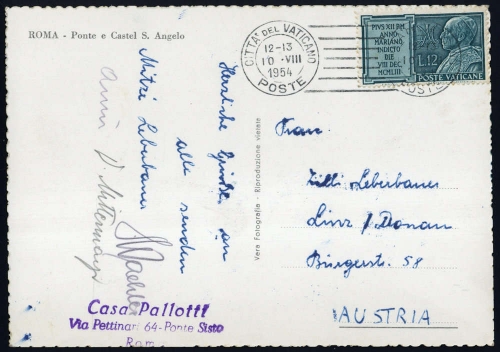 ROMA - Ponte e Castel S. Angelo
CITTA' DEL VATICANO
12-13
10 ·VIII
1954
POSTE
PIVS XII PM
ANNO
MARIANO
INDICTO
DIE
VIII DEC
MCMLIII
L.12
POSTE VATICANE
Herzliche Grüße an
alle senden
Mitzi Leberbauer
Vere Fotografie - Riproduzione vietata
Frau
Zilli Leberbauer
Linz / Donau
Bürgerstr. 58
AUSTRIA
Casa Pallotti
Via Pettinari 64-Ponte Sisto
Rom